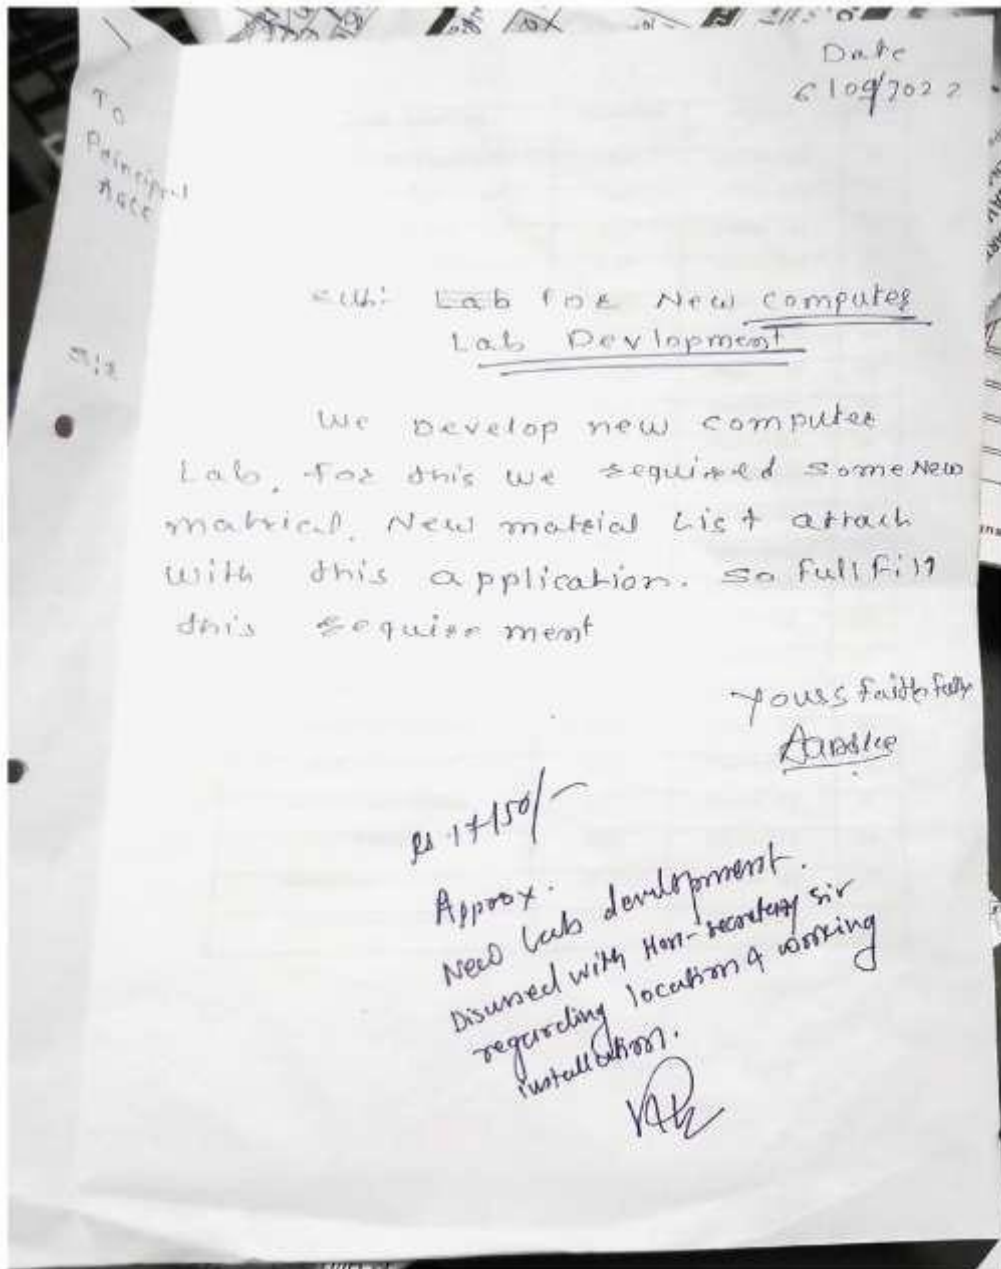 Date
6/09/2022
To
Principal
AGCE
Sub: Lab for New Computer
Lab Devlopment
Sir
We Develop new computer
Lab. For this we required some New
matrical. New mateial List attach
with this application. So fullfill
this requirement
Yours faithfully
Rs 17150/-
Approx.
New Lab development.
Disussed with Hon-secretary sir
regarding location & working
installation.